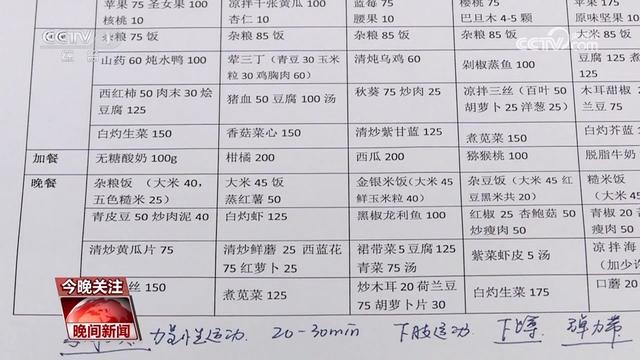 苹果 75 圣女果 100 凉拌千张黄瓜 100 蓝莓 75 樱桃 75 苹果 175
核桃 10 杏仁 10 腰果 10 巴旦木 4-5 颗 原味坚果 10
杂粮 75 饭 杂粮 85 饭 杂粮 85 饭 杂粮 85 饭 大米 85 饭
山药 60 炖水鸭 100 荤三丁（青豆 30 玉米粒 30 鸡胸肉 60） 清炖乌鸡 60 剁椒蒸鱼 100 豆腐 125 煮
西红柿 50 肉末 30 烩豆腐 125 猪血 50 豆腐 100 汤 秋葵 75 炒肉 25 凉拌三丝（百叶 50 胡萝卜 25 洋葱 25） 木耳甜椒 兰豆 75
白灼生菜 150 香菇菜心 150 清炒紫甘蓝 125 煮苋菜 150 白灼芥蓝
加餐 无糖酸奶 100g 柑橘 200 西瓜 200 猕猴桃 100 脱脂牛奶
晚餐 杂粮饭（大米 40，五色糙米 25） 大米 45 饭 蒸红薯 50 金银米饭（大米 45 鲜玉米粒 40） 杂豆饭（大米 45 红豆黑米共 20） 糙米饭（大米 45
青皮豆 50 炒肉泥 40 白灼虾 125 黑椒龙利鱼 100 红椒 25 杏鲍菇 50 炒瘦肉 50 青椒 20 炒瘦肉 50
清炒黄瓜片 75 清炒鲜蘑 25 西蓝花 75 红萝卜 25 裙带菜 5 豆腐 125 青菜 75 汤 紫菜虾皮 5 汤 凉拌海（加少许
丝 150 煮苋菜 125 炒木耳 20 荷兰豆 75 胡萝卜片 30 白灼生菜 175 口蘑 20
力量性运动 20-30min 下肢运动 下蹲 弹力带
CCTV
CCTV
com
今晚关注
晚间新闻